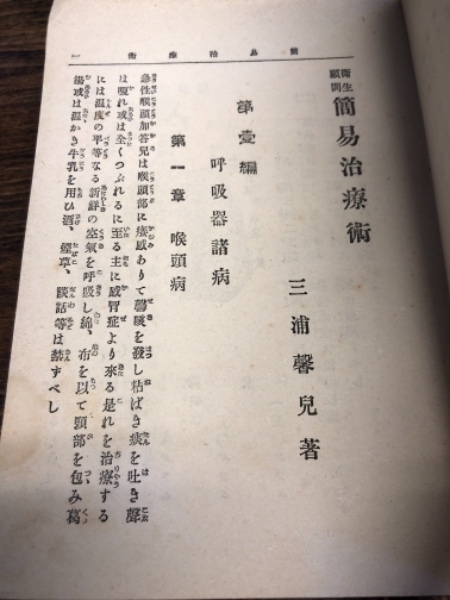 簡易治療術
一
衛生顧問 簡易治療術
三浦馨兒著
第壹編
呼吸器諸病
第一章 喉頭病
急性喉頭加答兒は喉頭部に痒感ありて謦咳を發し粘ばき痰を吐き聲
は嗄れ或は全くつぶれるに至る主に感冒症より來る是れを治療する
には温度の平等なる新鮮の空氣を呼吸し綿、布を以て頸部を包み葛
湯或は温かき牛乳を用ひ酒、煙草、談話等は禁ずべし